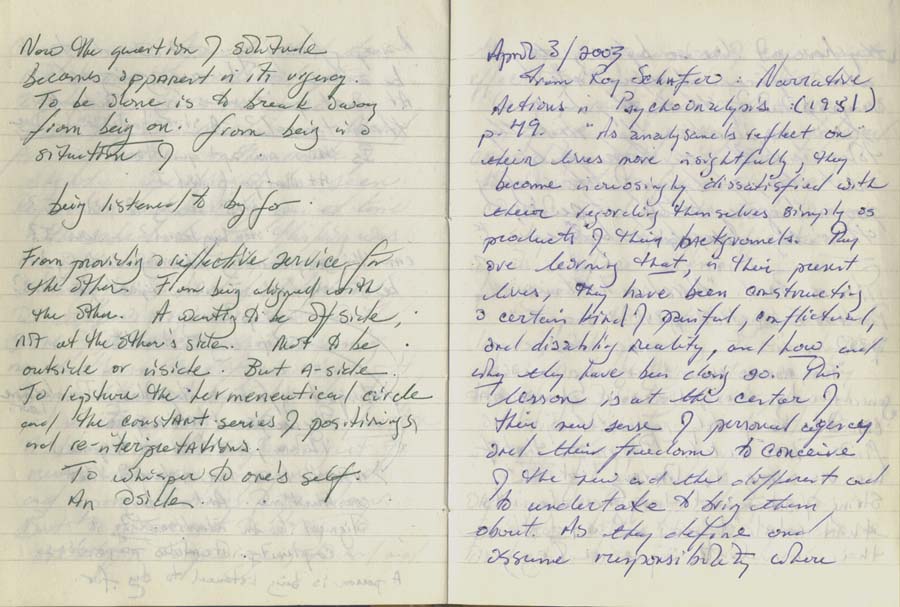 Now the question of solitude
becomes apparent in its urgency.
To be alone is to break away
from being on. from being in a
situation of
being listened to by for.
From providing a reflective service for
the other. From being aligned with
the other. A wanting to be off side,
not at the other's side. Not to be
outside or inside. But A-side.
To rupture the hermeneutical circle
and the constant series of positionings
and re-interpretations.
To whisper to one's self.
An aside.
April 3/2003
From Roy Schafer: Narrative
Actions in Psychoanalysis: (1981)
p. 49. "As analysands reflect on
their lives more insightfully, they
become increasingly dissatisfied with
their regarding themselves simply as
products of their backgrounds. They
are learning that, in their present
lives, they have been constructing
a certain kind of painful, conflictual,
and disabling reality, and how and
why they have been doing so. This
lesson is at the center of
their new sense of personal agency
and their freedom to conceive
of the new and the different and
to undertake to bring them
about. As they define and
assume responsibility where
A person is being listened to by for